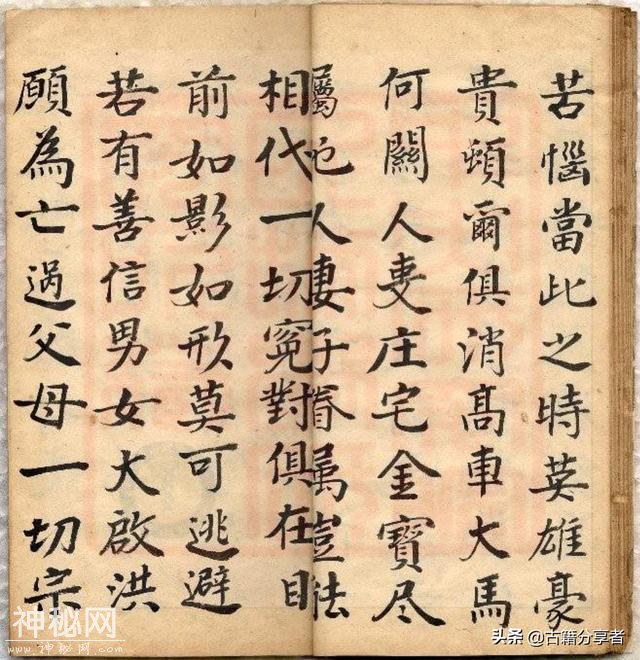 苦惱當此之時英雄豪
貴頓爾俱消髙車大馬
何關人叓庄宅金寶尽
屬他人妻子眷属豈
相代一切寃對俱在目
前如影如形莫可逃避
若有善信男女大啟洪
願為亡過父母一切宗
神秘网
http://www.神秘网.com
头条 @古籍分享者